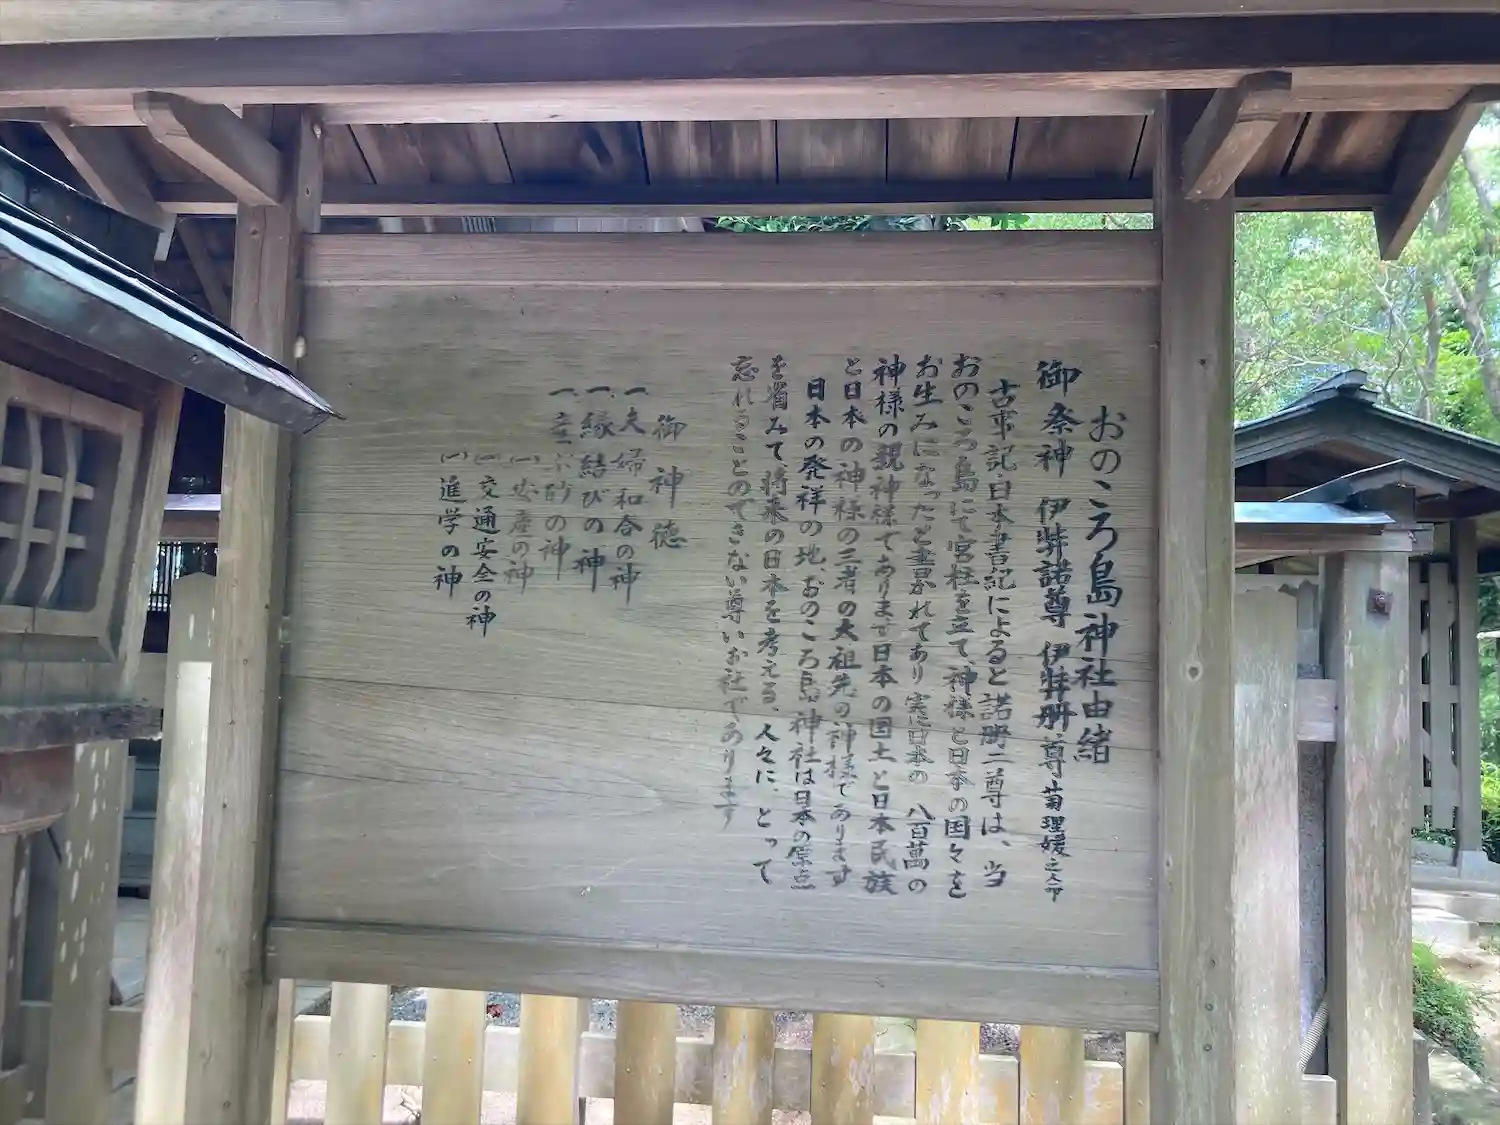 おのころ島神社由緒
御祭神 伊弉諾尊 伊弉冊尊 菊理媛之命
古事記・日本書紀によると諾冊二尊は、当
おのころ島にて宮柱を立て、神様と日本の国々を
お生みになったと書かれてあり 実に日本の 八百萬の
神様の親神様でありまして日本の国土と日本民族
と日本の神様の三者の大祖先の神様であります
日本の発祥の地おのころ島神社は日本の原点
を省みて、将来の日本を考える、人々に、とって
忘れることのできない尊いお社であります
御神徳
一、夫婦和合の神
一、縁結びの神
一、産 砂の神
(一)安産の神
(一)交通安全の神
(一)進学の神